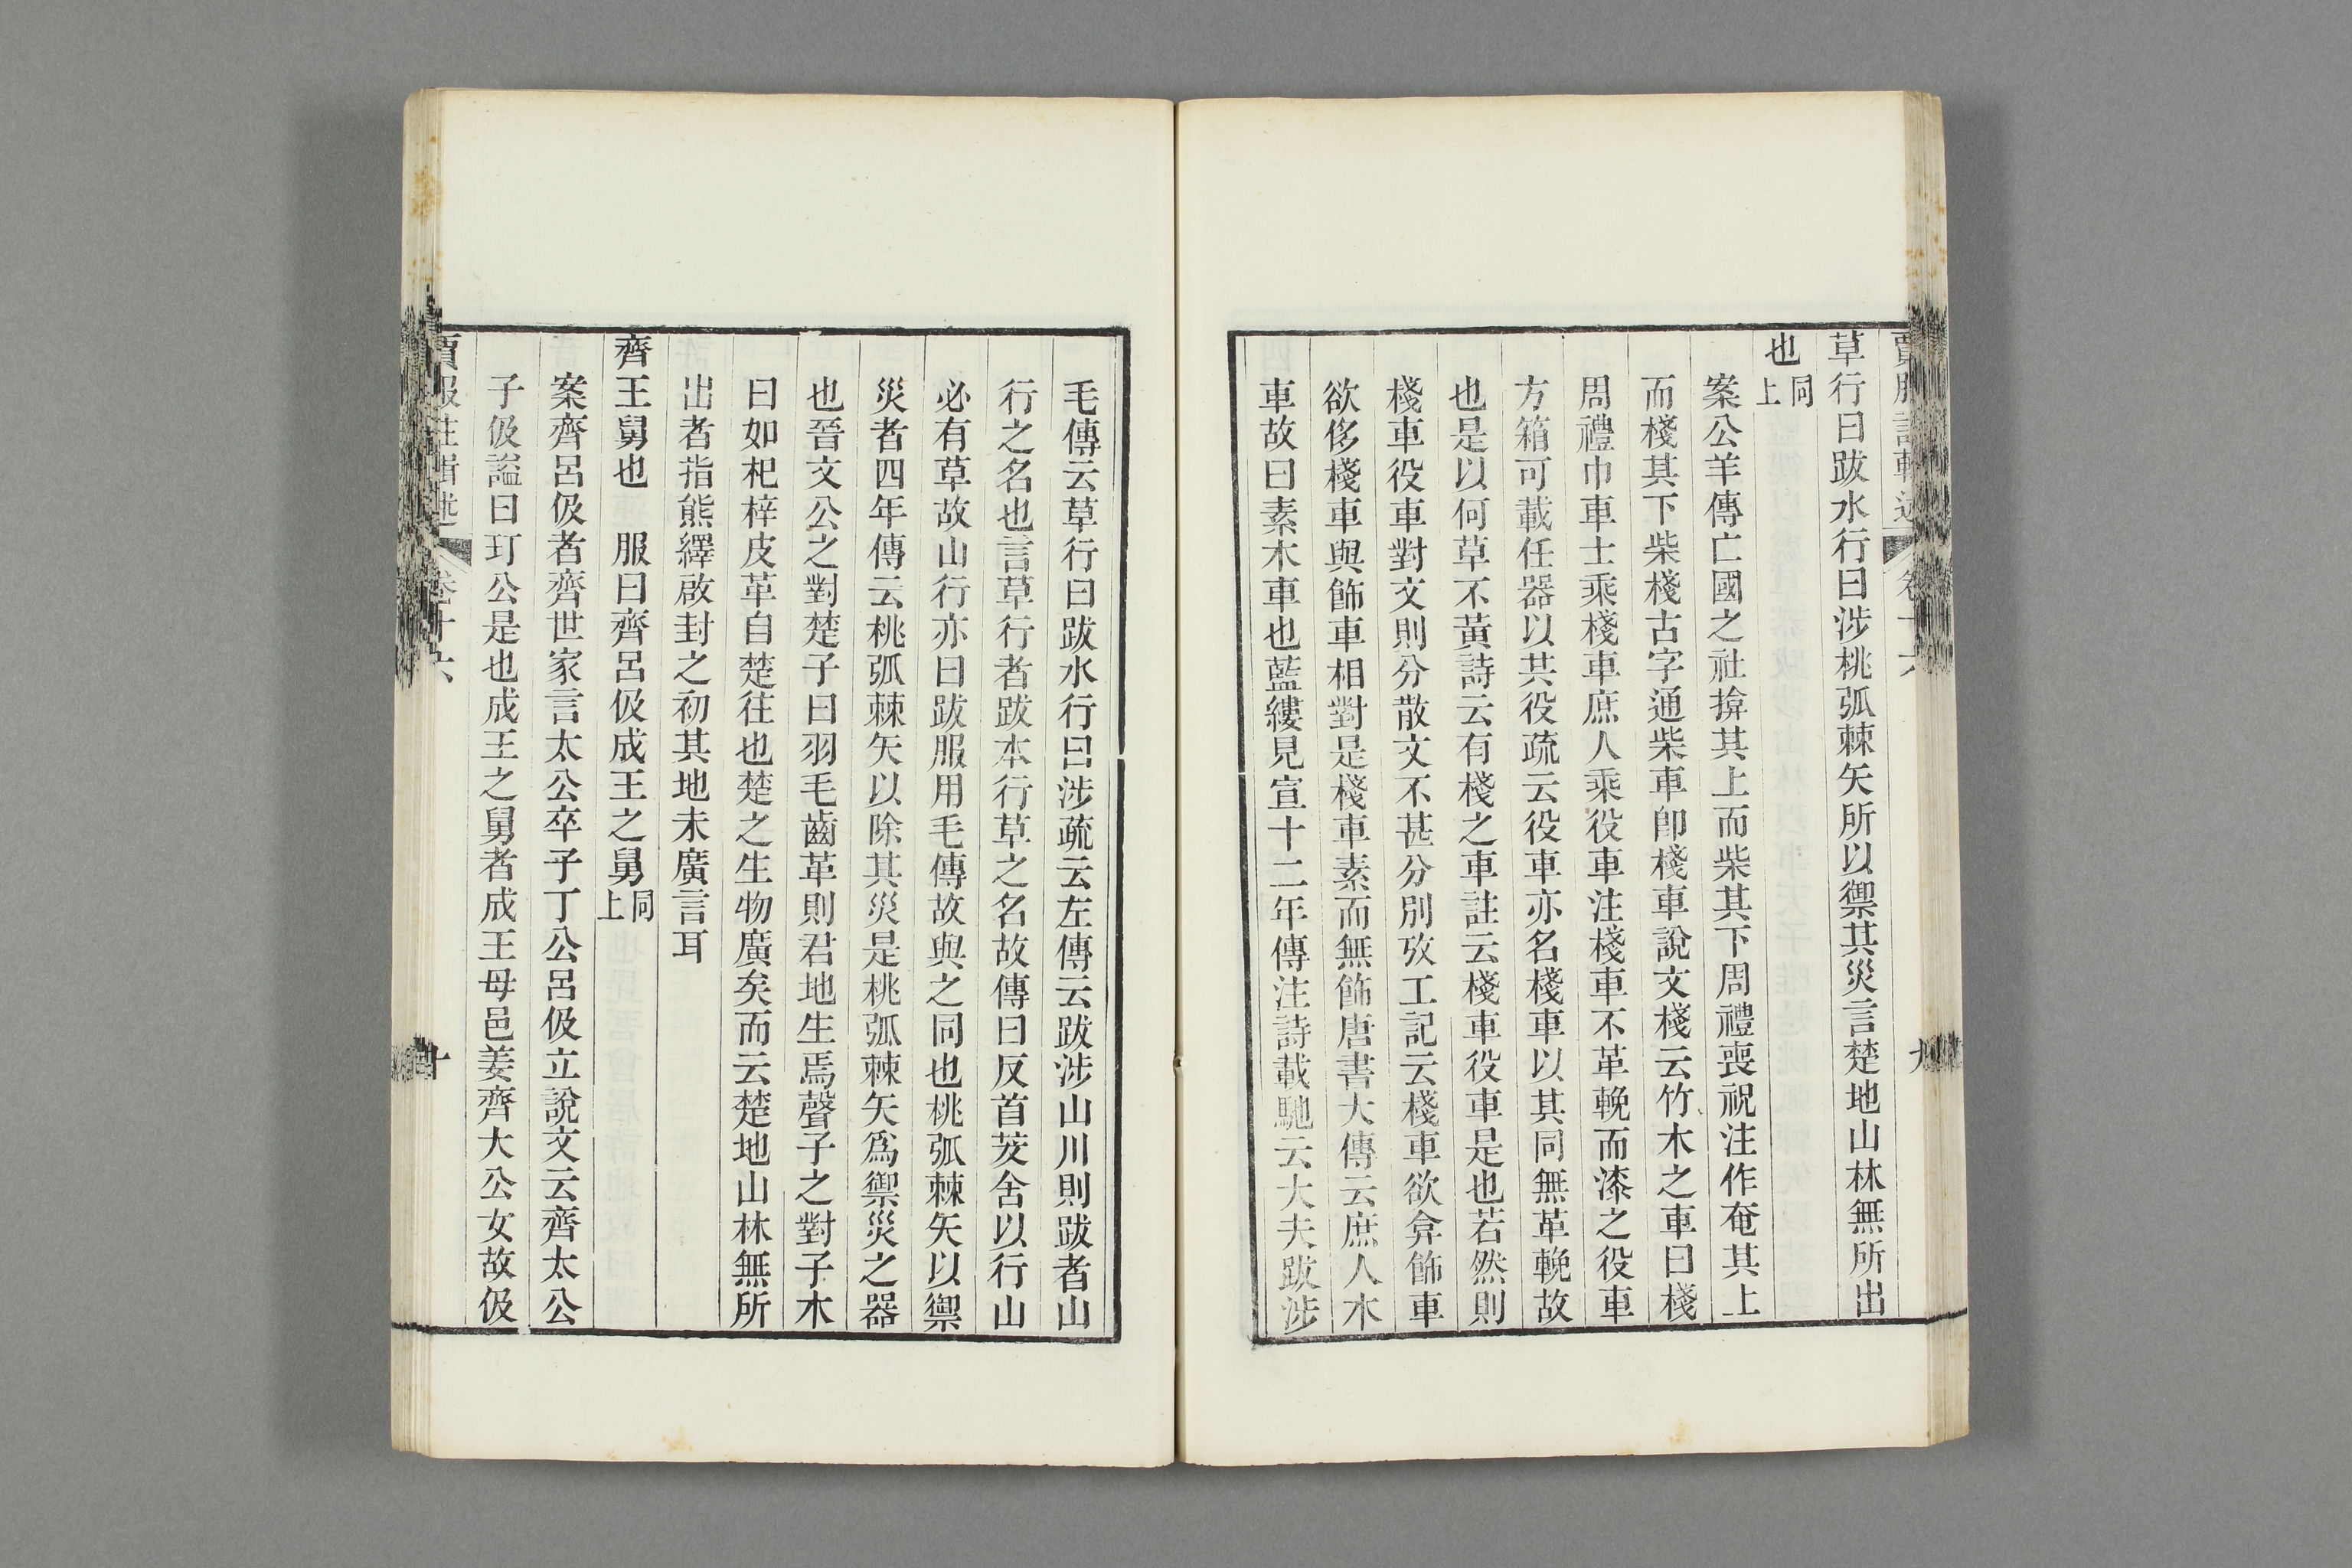 草行曰跋水行曰涉桃弧棘矢所以禦其災言楚地山林無所出
也同上
案公羊傳亡國之社揜其上而柴其下周禮喪祝注作奄其上
而棧其下柴棧古字通柴車卽棧車說文棧云竹木之車曰棧
周禮巾車士乘棧車庶人乘役車注棧車不革輓而漆之役車
方箱可載任器以共役疏云役車亦名棧車以其同無革輓故
也是以何草不黃詩云有棧之車註云棧車役車是也若然則
棧車役車對文則分散文不甚分別攷工記云棧車欲弇飾車
欲侈棧車與飾車相對是棧車素而無飾唐書大傳云庶人木
車故曰素木車也藍縷見宣十二年傳注詩載馳云大夫跋涉
毛傳云草行曰跋水行曰涉疏云左傳云跋涉山川則跋者山
行之名也言草行者跋本行草之名故傳曰反首茇舍以行山
必有草故山行亦曰跋服用毛傳故與之同也桃弧棘矢以禦
災者四年傳云桃弧棘矢以除其災是桃弧棘矢爲禦災之器
也晉文公之對楚子曰羽毛齒革則君地生焉聲子之對子木
曰如杞梓皮革自楚往也楚之生物廣矣而云楚地山林無所
出者指熊繹啟封之初其地未廣言耳
齊王舅也　服曰齊呂伋成王之舅同上
案齊呂伋者齊世家言太公卒子丁公呂伋立說文云齊太公
子伋謚曰玎公是也成王之舅者成王母邑姜齊大公女故伋
賈服注輯述　卷十六　十